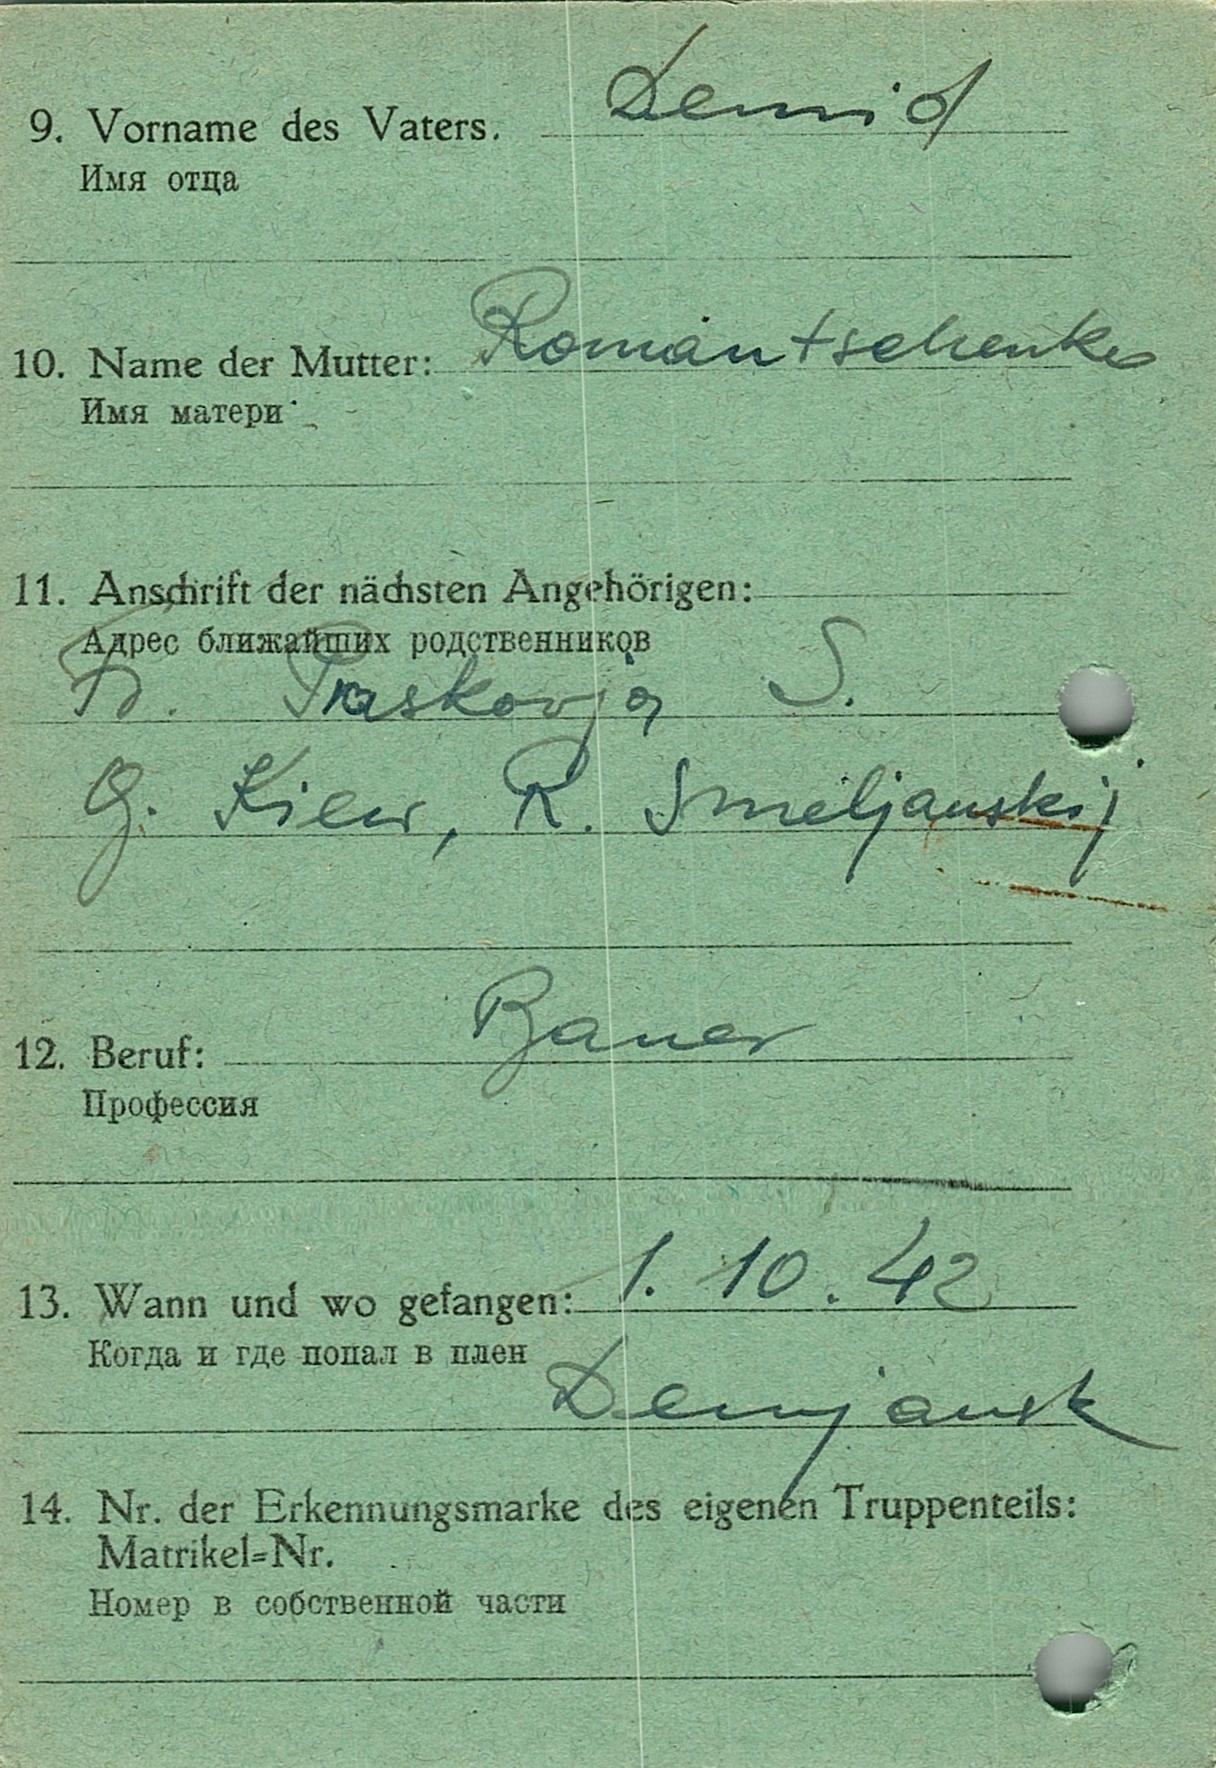 9. Vorname des Vaters. Demid
Имя отца
10. Name der Mutter: Romantschenko
Имя матери
11. Anschrift der nächsten Angehörigen:
Адрес ближайших родственников
Praskovja S.
G. Kiew, R. Smeljanskij
12. Beruf: Bauer
Профессия
13. Wann und wo gefangen: 1. 10. 42
Когда и где попал в плен
Demjansk
14. Nr. der Erkennungsmarke des eigenen Truppenteils:
Matrikel=Nr.
Номер в собственной части